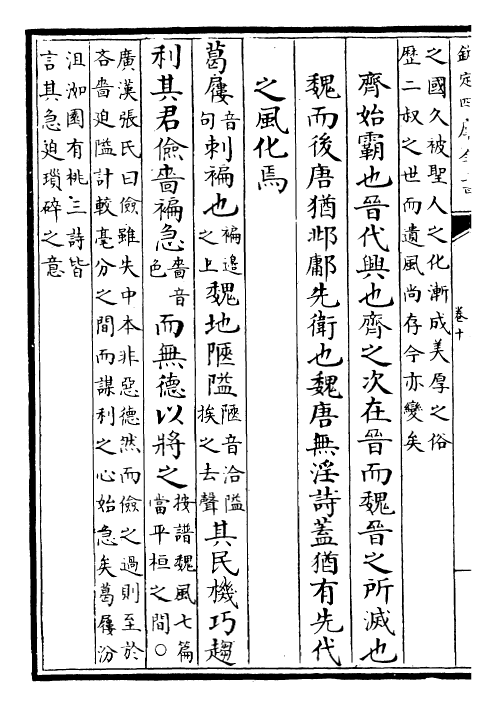 欽定四庫全書
卷十
之國久被聖人之化漸成美厚之俗
歴二叔之世而遺風尚存今亦變矣
齊始霸也晉代興也齊之次在晉而魏晉之所滅也
魏而後唐猶邶鄘先衛也魏唐無淫詩蓋猶有先代
之風化焉
葛屨音句刺褊也褊邉之上魏地陿隘陿音洽隘挨之去聲其民機巧趨
利其君儉嗇褊急嗇音色而無德以將之按譜魏風七篇當平桓之間○
廣漢張氏曰儉雖失中本非惡德然而儉之過則至於
吝嗇迫隘計較毫分之間而謀利之心始急矣葛屨汾
沮洳園有桃三詩皆
言其急迫瑣碎之意